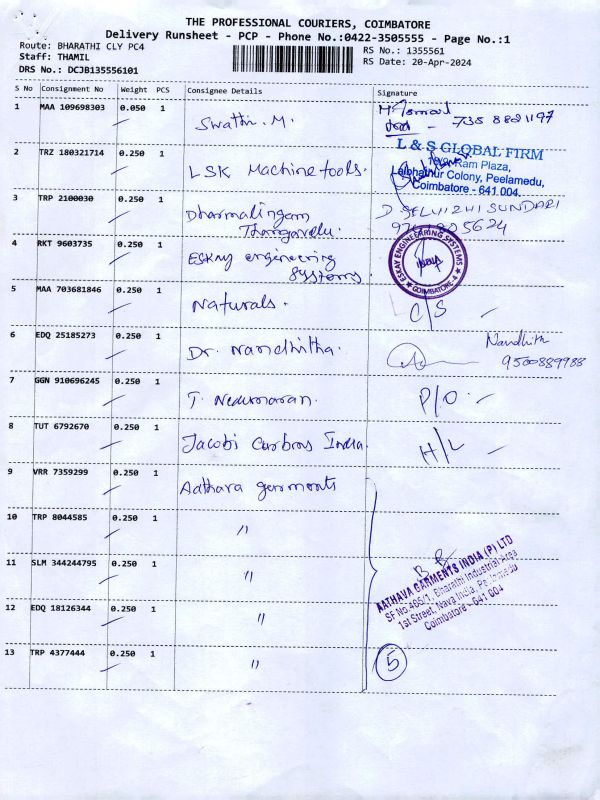 THE PROFESSIONAL COURIERS, COIMBATORE
Delivery Runsheet - PCP - Phone No.:0422-3505555 - Page No.:1
Route: BHARATHI CLY PC4
RS No.: 1355561
Staff: THAMIL
RS Date: 20-Apr-2024
DRS No.: DCJB135556101
S No Consignment No Weight PCS Consignee Details Signature
1 MAA 109698303 0.050 1 Swathi. M.
2 TRZ 180321714 0.250 1 LSK Machine tools.
L & S GLOBAL FIRM
Ram Plaza,
Lalbhathur Colony, Peelamedu,
Coimbatore - 641 004.
3 TRP 2100030 0.250 1 Dharmalingam
Thangavelu.
D SELVIZHI SUNDARI
4 RKT 9603735 0.250 1 ESKAY engineering
Systems.
ESKAY ENGINEERING SYSTEMS
COIMBATORE-4
5 MAA 703681846 0.250 1 Naturals. C/S
6 EDQ 25185273 0.250 1 Dr. Nandhitha. Nandhith
9500889988
7 GGN 910696245 0.250 1 T. Nedumaran. P/O
8 TUT 6792670 0.250 1 Jacobi Carbons India. H/L
9 VRR 7359299 0.250 1 Aathava garments
10 TRP 8044585 0.250 1 "
11 SLM 344244795 0.250 1 "
AATHAVA GARMENTS INDIA (P) LTD
SF No.465/1, Bharathi Industrial Area
1st Street, Nava India, Peelamedu
Coimbatore - 641 004
12 EDQ 18126344 0.250 1 "
13 TRP 4377444 0.250 1 "
5